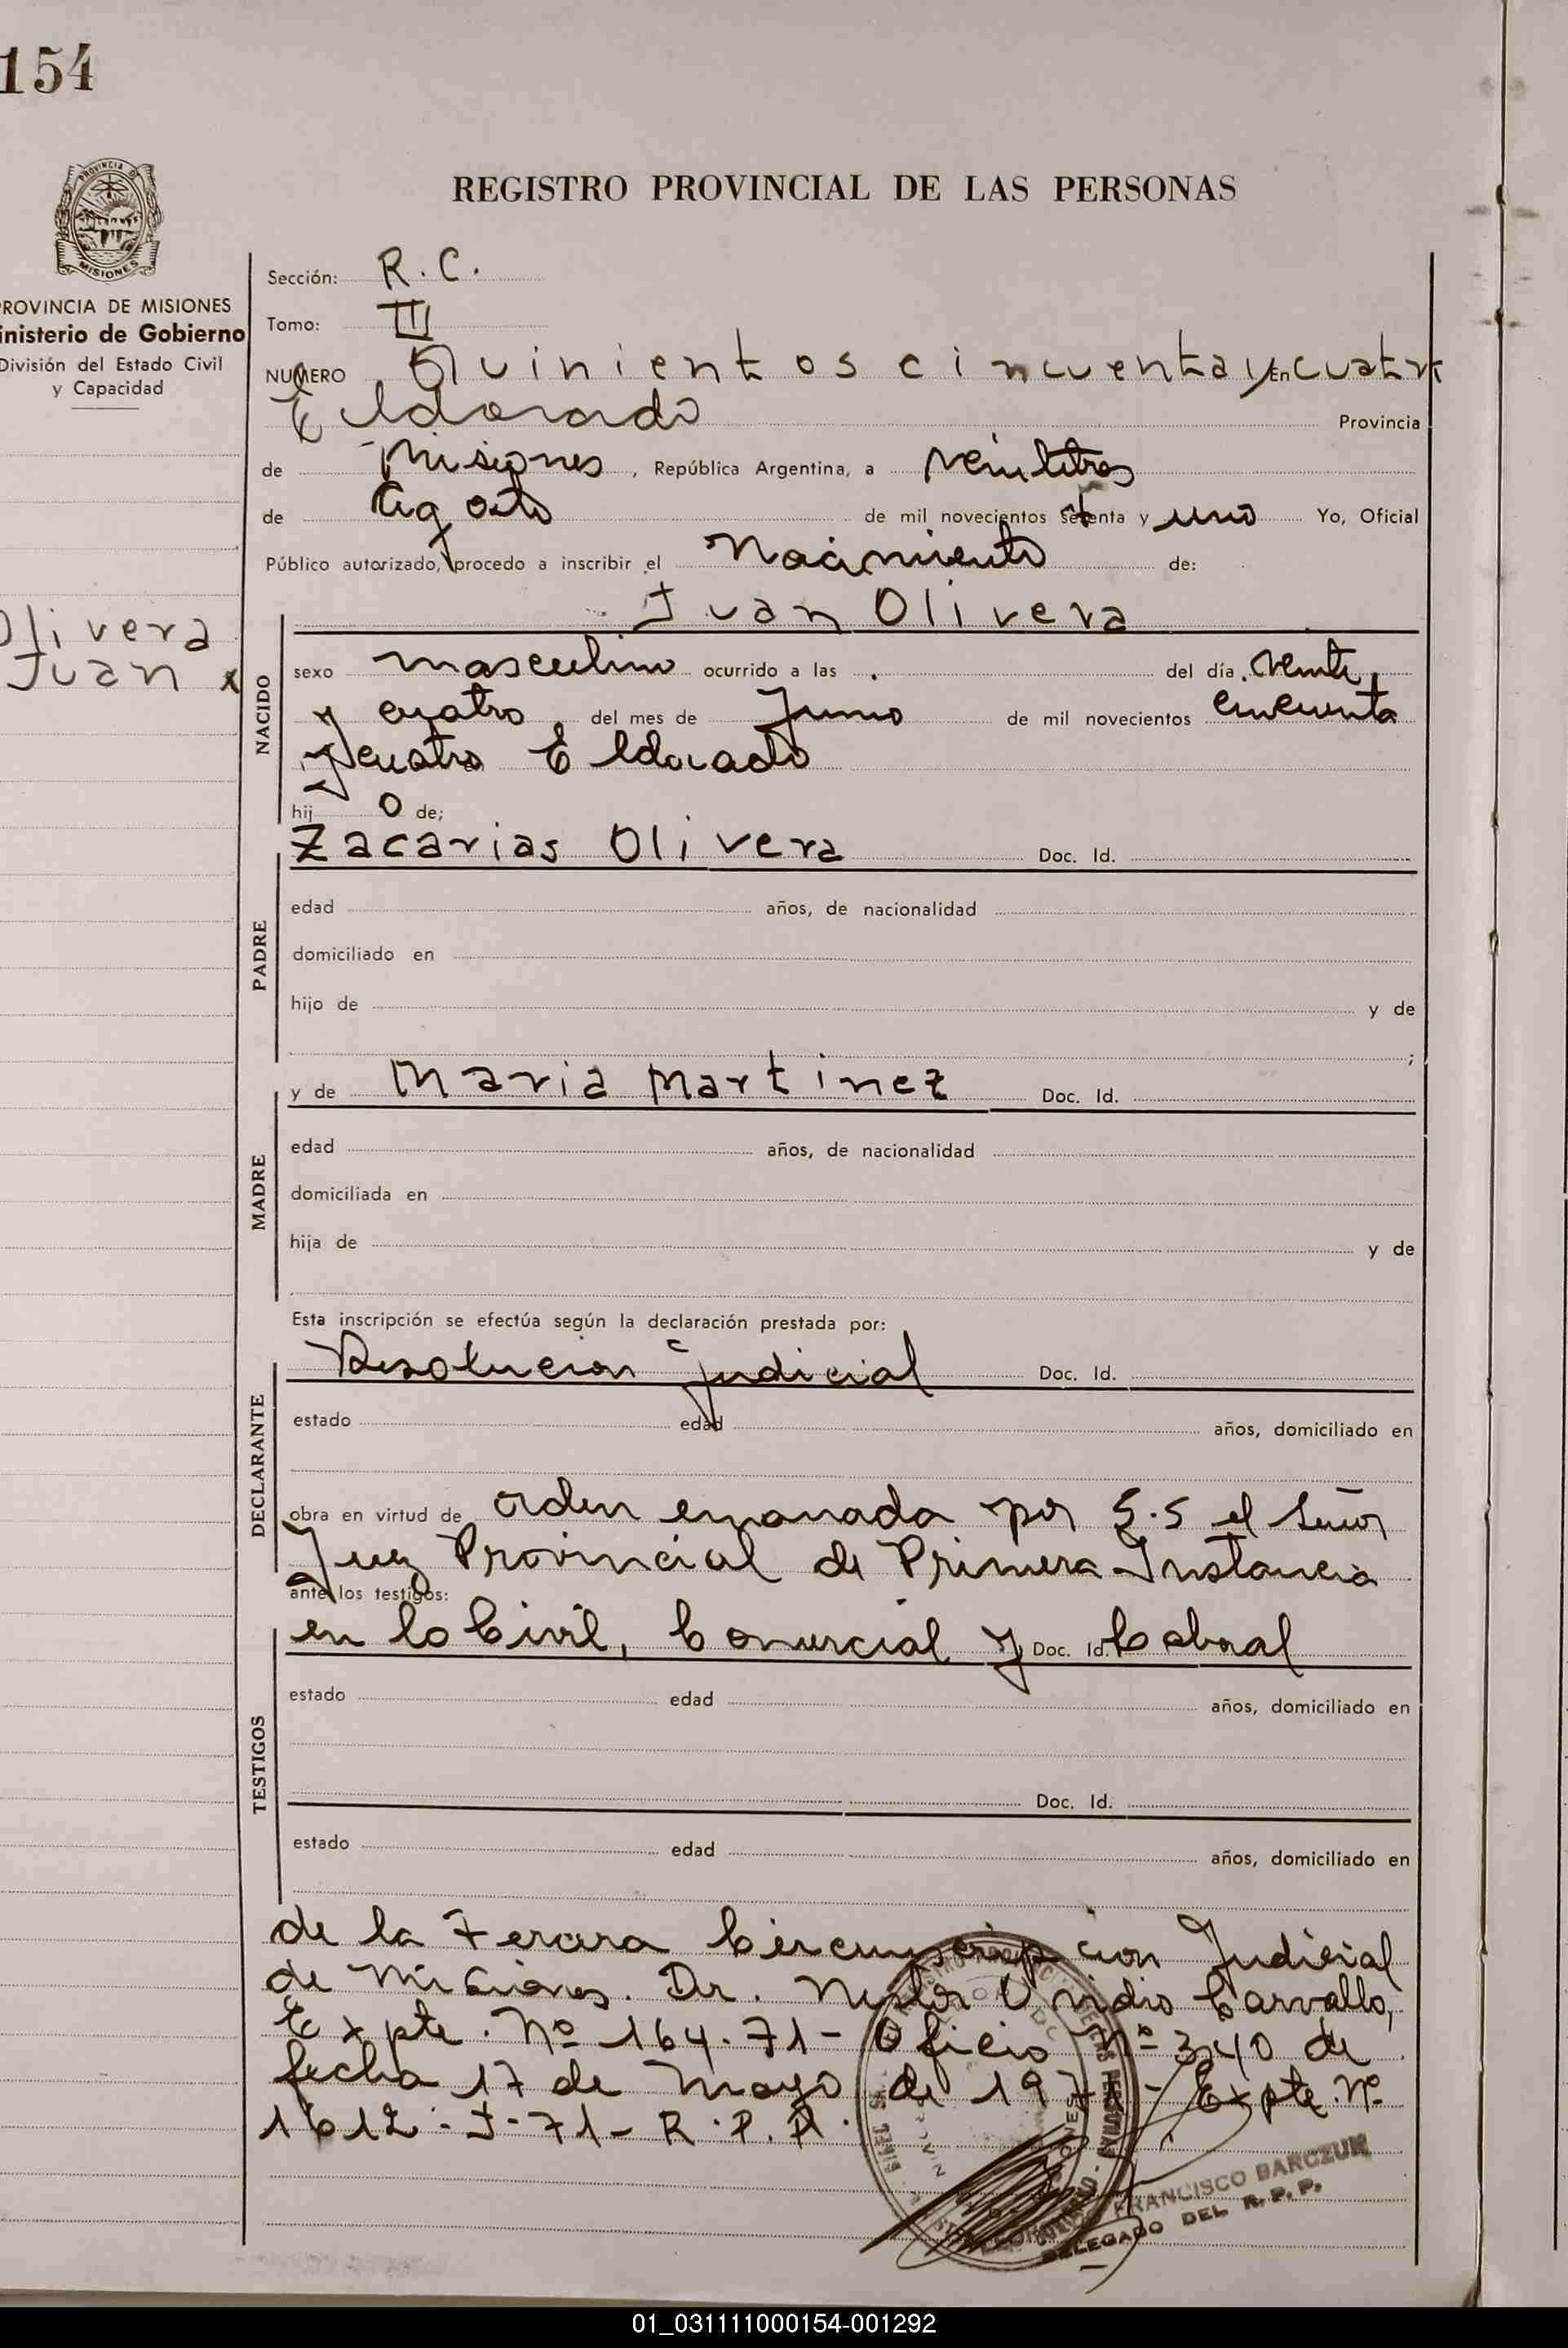 154
REGISTRO PROVINCIAL DE LAS PERSONAS
PROVINCIA DE
MISIONES
PROVINCIA DE MISIONES
inisterio de Gobierno
División del Estado Civil
y Capacidad
Sección: R. C.
Tomo: III
NUMERO Quinientos cincuenta y cuatro En
Eldorado Provincia
de Misiones, República Argentina, a veintitres
de Agosto de mil novecientos setenta y uno Yo, Oficial
Público autorizado, procedo a inscribir el Nacimiento de:
Juan Olivera
Olivera
Juan x
NACIDO
sexo masculino ocurrido a las . del día veinte
y cuatro, del mes de Junio de mil novecientos cincuenta
y cuatro Eldorado
hij o de;
Zacarias Olivera Doc. Id.
PADRE
edad años, de nacionalidad
domiciliado en
hijo de y de
;
y de Maria Martinez Doc. Id.
MADRE
edad años, de nacionalidad
domiciliada en
hija de y de
Esta inscripción se efectúa según la declaración prestada por:
Resolucion judicial Doc. Id.
DECLARANTE
estado edad años, domiciliado en
obra en virtud de orden emanada por S.S el Señor
Juez Provincial de Primera Instancia
ante los testigos:
en lo Civil, Comercial y Doc. Id. Laboral
TESTIGOS
estado edad años, domiciliado en
Doc. Id.
estado edad años, domiciliado en
de la Tercera Circunscripcion Judicial
de Misiones. Dr. Nestor Ovidio Carvallo,
Expte. Nº 164-71- Oficio Nº 340 de
fecha 17 de Mayo de 1971- Expte. Nº
1612-J-71- R.P.P.
FRANCISCO BARCZUK
DELEGADO DEL R. P. P.
01_031111000154-001292